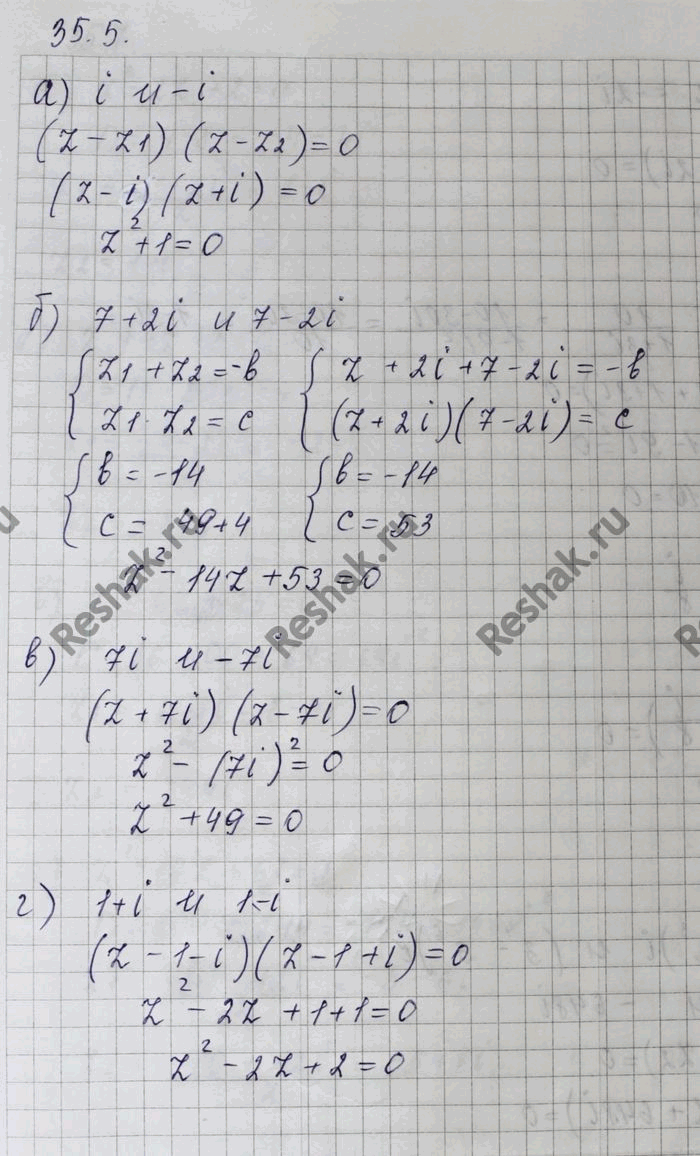 35.5.
а) i и -i
(z - z1) (z - z2) = 0
(z - i) (z + i) = 0
z² + 1 = 0
б) 7 + 2i и 7 - 2i
{ z1 + z2 = -b { z + 2i + 7 - 2i = -b
z1 · z2 = c (z + 2i)(7 - 2i) = c
{ b = -14 { b = -14
c = 49 + 4 c = 53
z² - 14z + 53 = 0
в) 7i и -7i
(z + 7i) (z - 7i) = 0
z² - (7i)² = 0
z² + 49 = 0
г) 1 + i и 1 - i
(z - 1 - i)(z - 1 + i) = 0
z² - 2z + 1 + 1 = 0
z² - 2z + 2 = 0
Reshak.ru
Reshak.ru
Reshak.ru